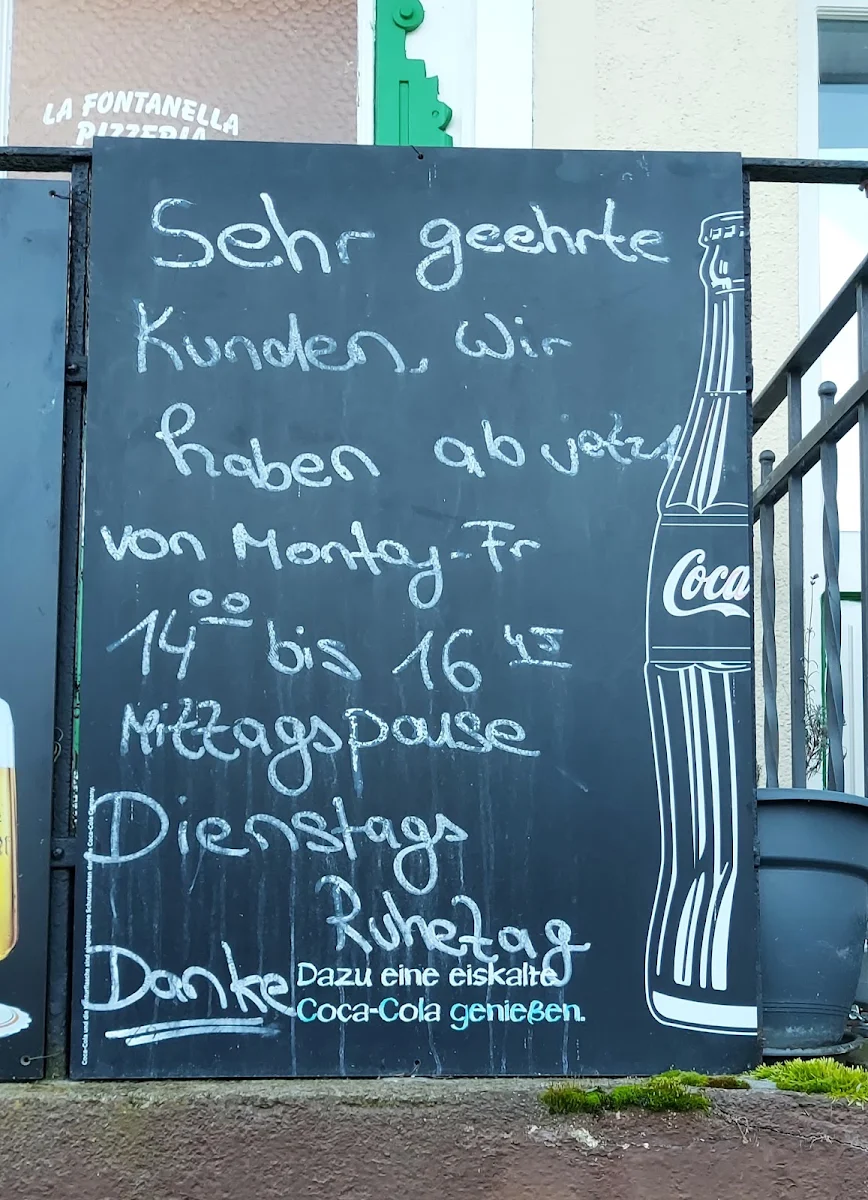 LA FONTANELLA
PIZZERIA
Sehr geehrte
Kunden, wir
haben ab jetzt
von Montag-Fr
14°° bis 16 45
Mittagspause
Dienstags
Ruhetag
Danke
Dazu eine eiskalte
Coca-Cola genießen.
Coca